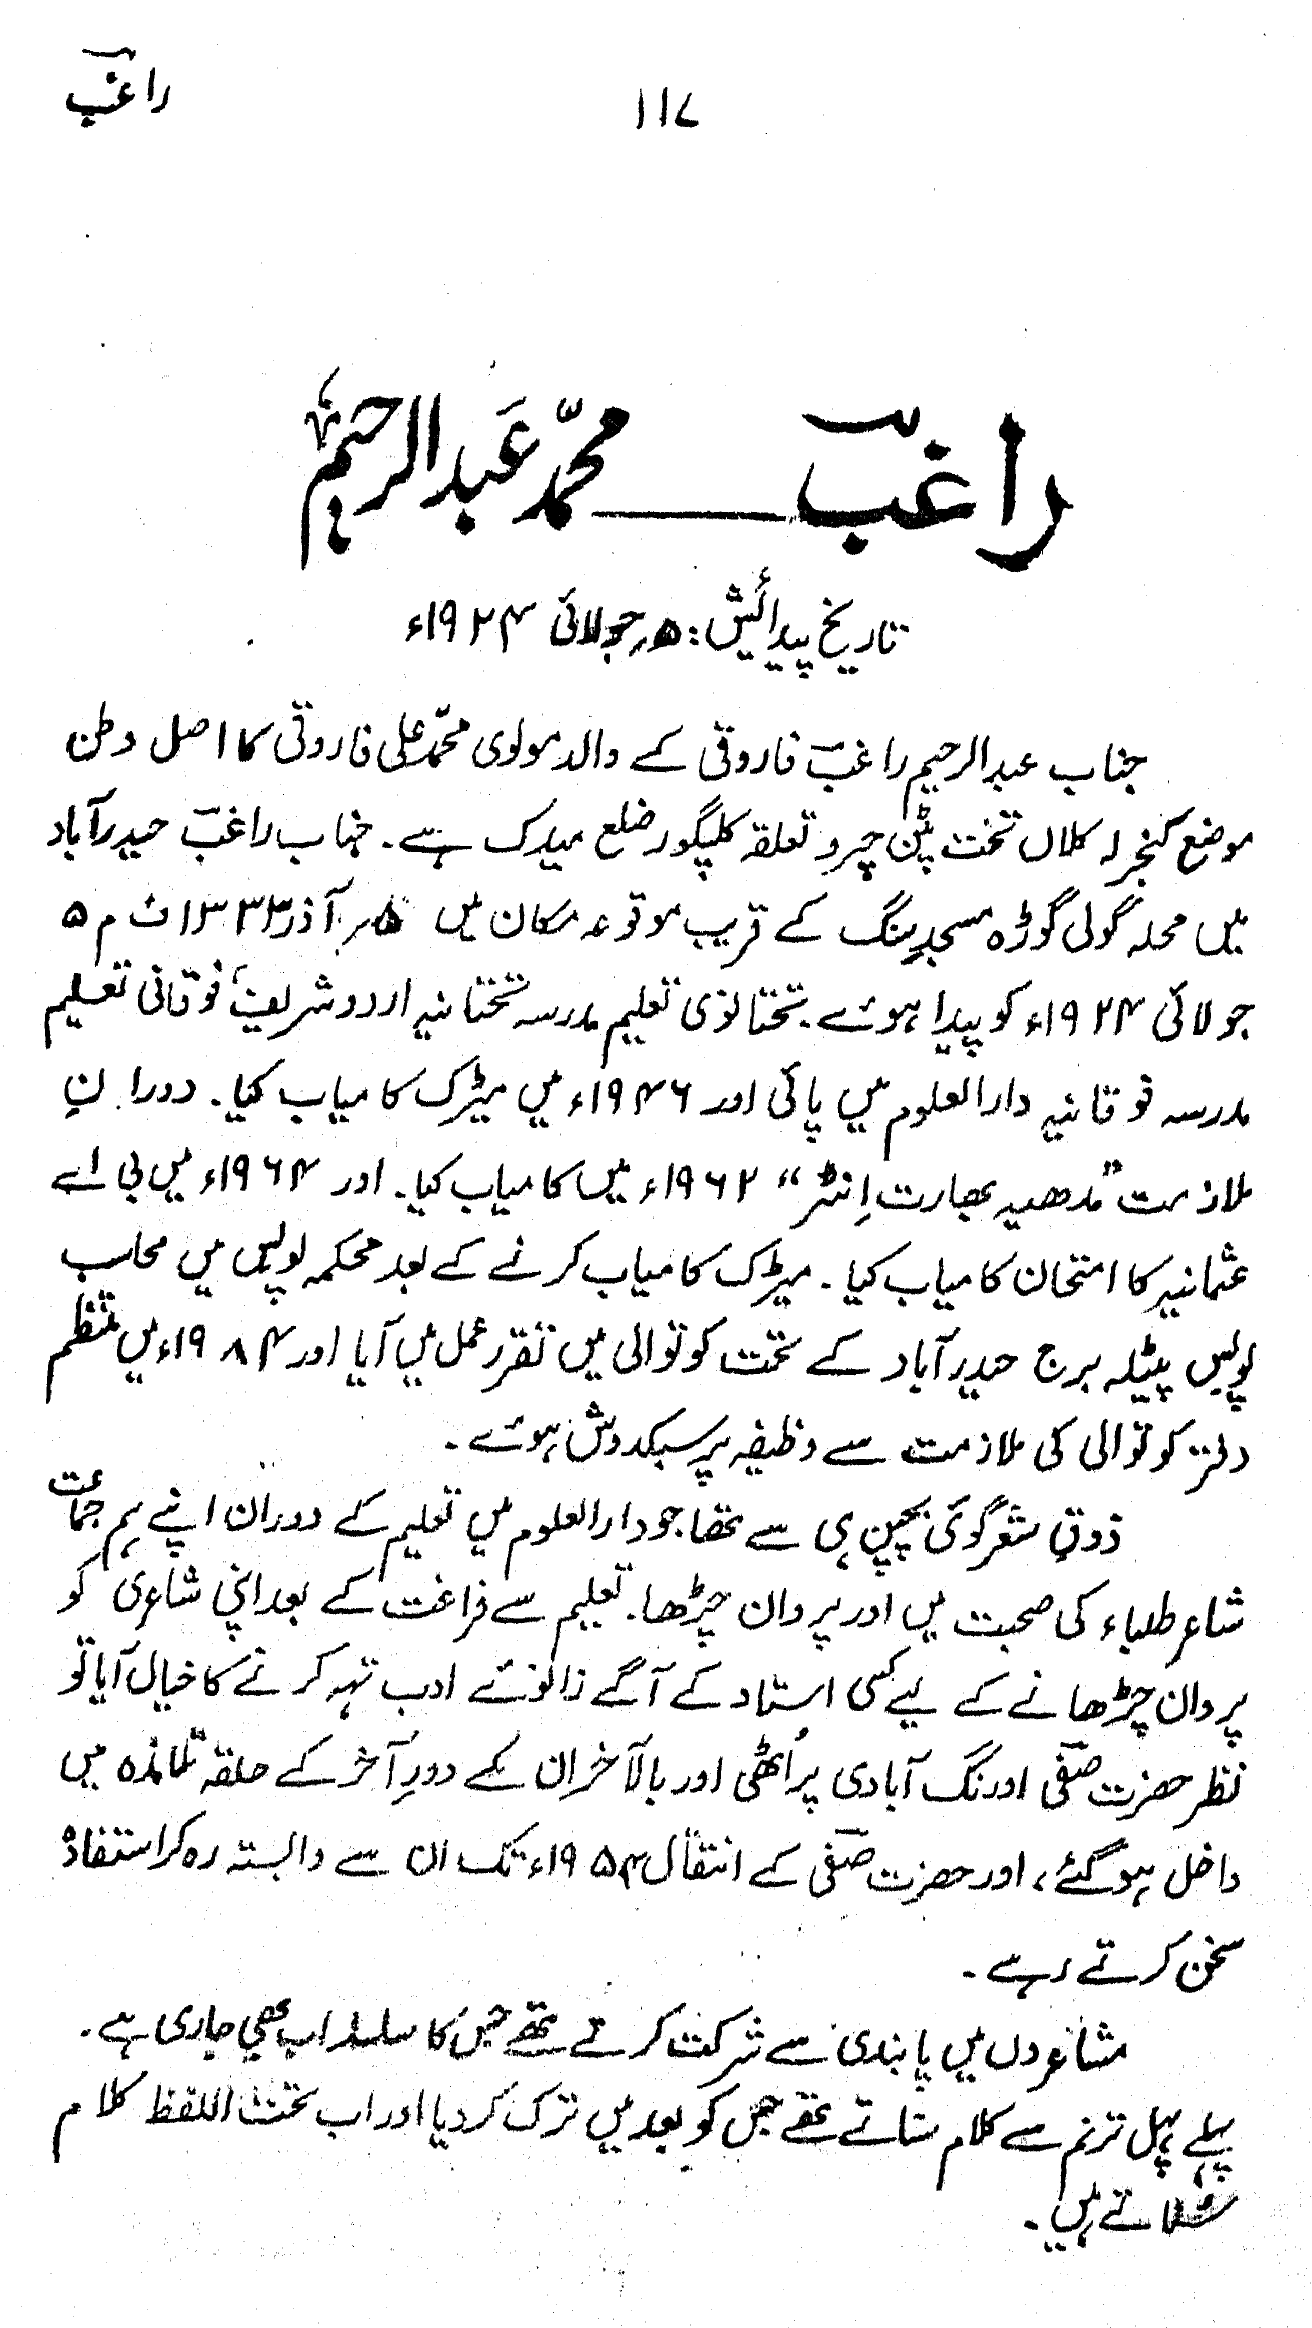 راغبؔ
۱۱۷
راغبؔ ـــــ محمّد عَبدالرحیم
تاریخ پیدائش: ۵؍جولائی ۱۹۲۴ء
جناب عبدالرحیم راغبؔ فاروقی کے والد مولوی محمّد علی فاروقی کا اصل وطن
موضع کنجرلہ کلاں تحت پٹن چرو تعلقہ کلپگور ضلع میدک ہے۔ جناب راغبؔ حیدرآباد
میں محلہ گولی گوڑہ مسجد سنگ کے قریب موقوعہ مکان میں ۵؍ آذر ۱۳۳۳ ف م ۵
جولائی ۱۹۲۴ء کو پیدا ہوئے۔ تحتانوی تعلیم مدرسہ تحتانیہ اردو شریف فوقانی تعلیم
مدرسہ فوقانیہ دارالعلوم میں پائی اور ۱۹۴۶ء میں میٹرک کامیاب کیا۔ دورانِ
ملازمت ”مدھیہ بھارت اِنٹر“ ۱۹۶۲ء میں کامیاب کیا۔ اور ۱۹۶۴ء میں بی اے
عثمانیہ کا امتحان کامیاب کیا۔ میٹرک کامیاب کرنے کے بعد محکمہ پولیس میں محاسب
پولیس پیٹلہ برج حیدرآباد کے تحت کوتوالی میں تقرر عمل میں آیا اور ۱۹۸۴ء میں منتظم
دفتر کوتوالی کی ملازمت سے وظیفہ پر سبکدوش ہوئے۔
ذوقِ شعر گوئی بچپن ہی سے تھا جو دارالعلوم میں تعلیم کے دوران اپنے ہم جماعت
شاعر طلباء کی صحبت میں اور پروان چڑھا۔ تعلیم سے فراغت کے بعد اپنی شاعری کو
پروان چڑھانے کے لیے کسی استاد کے آگے زانوئے ادب تہہ کرنے کا خیال آیا تو
نظر حضرت صفیؔ اورنگ آبادی پر اُٹھی اور بالآخر ان کے دورِ آخر کے حلقہ تلامذہ میں
داخل ہوگئے، اور حضرت صفیؔ کے انتقال ۱۹۵۴ء تک ان سے وابستہ رہ کر استفادہ
سخن کرتے رہے۔
مشاعروں میں پابندی سے شرکت کرتے تھے جس کا سلسلہ اب بھی جاری ہے۔
پہلے پہل ترنم سے کلام سناتے تھے جس کو بعد میں ترک کر دیا اور اب تحت اللفظ کلام
سناتے ہیں۔